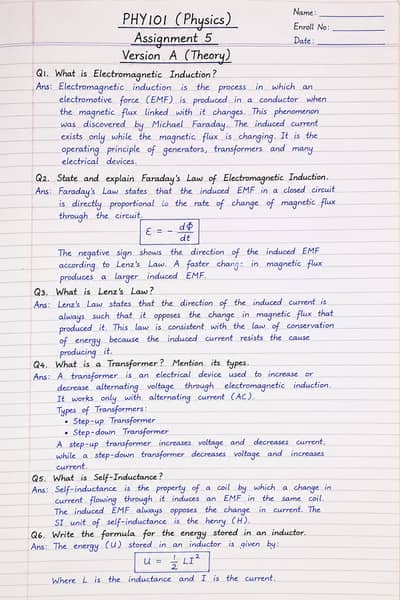 PHY101 (Physics)
Assignment 5
Version A (Theory)
Name:
Enroll No:
Date:
Q1. What is Electromagnetic Induction?
Ans: Electromagnetic induction is the process in which an
electromotive force (EMF) is produced in a conductor when
the magnetic flux linked with it changes. This phenomenon
was discovered by Michael Faraday. The induced current
exists only while the magnetic flux is changing. It is the
operating principle of generators, transformers and many
electrical devices.
Q2. State and explain Faraday's Law of Electromagnetic Induction.
Ans: Faraday's Law states that the induced EMF in a closed circuit
is directly proportional to the rate of change of magnetic flux
through the circuit.
ε = - dΦ/dt
The negative sign shows the direction of the induced EMF
according to Lenz's Law. A faster change in magnetic flux
produces a larger induced EMF.
Q3. What is Lenz's Law?
Ans: Lenz's Law states that the direction of the induced current is
always such that it opposes the change in magnetic flux that
produced it. This law is consistent with the law of conservation
of energy because the induced current resists the cause
producing it.
Q4. What is a Transformer? Mention its types.
Ans: A transformer is an electrical device used to increase or
decrease alternating voltage through electromagnetic induction.
It works only with alternating current (AC).
Types of Transformers:
• Step-up Transformer
• Step-down Transformer
A step-up transformer increases voltage and decreases current,
while a step-down transformer decreases voltage and increases
current.
Q5. What is Self-Inductance?
Ans: Self-inductance is the property of a coil by which a change in
current flowing through it induces an EMF in the same coil.
The induced EMF always opposes the change in current. The
SI unit of self-inductance is the henry (H).
Q6. Write the formula for the energy stored in an inductor.
Ans: The energy (U) stored in an inductor is given by:
U = 1/2 LI²
Where L is the inductance and I is the current.